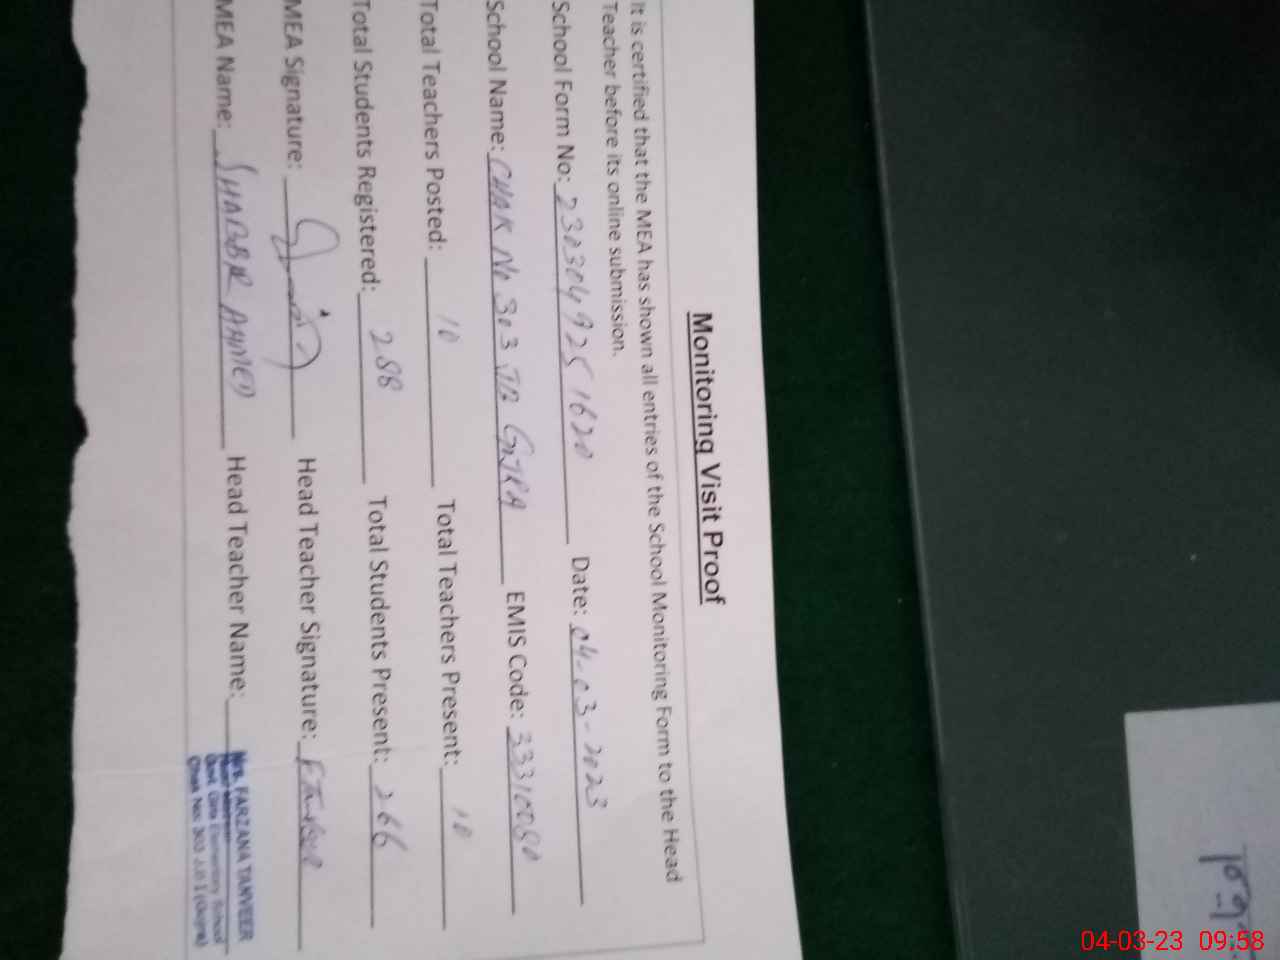 Monitoring Visit Proof
It is certified that the MEA has shown all entries of the School Monitoring Form to the Head
Teacher before its online submission.
School Form No: 230304925 1620 Date: 04-03-2023
School Name: CHAK No 303 JB GOJRA EMIS Code: 33310080
Total Teachers Posted: 10 Total Teachers Present: 10
Total Students Registered: 288 Total Students Present: 266
MEA Signature: Head Teacher Signature: FTanveer
MEA Name: SHABBIR AHMED Head Teacher Name:
Mrs. FARZANA TANVEER
Govt. Girls Elementary School
Chak No: 303 J.B
04-03-23 09:58